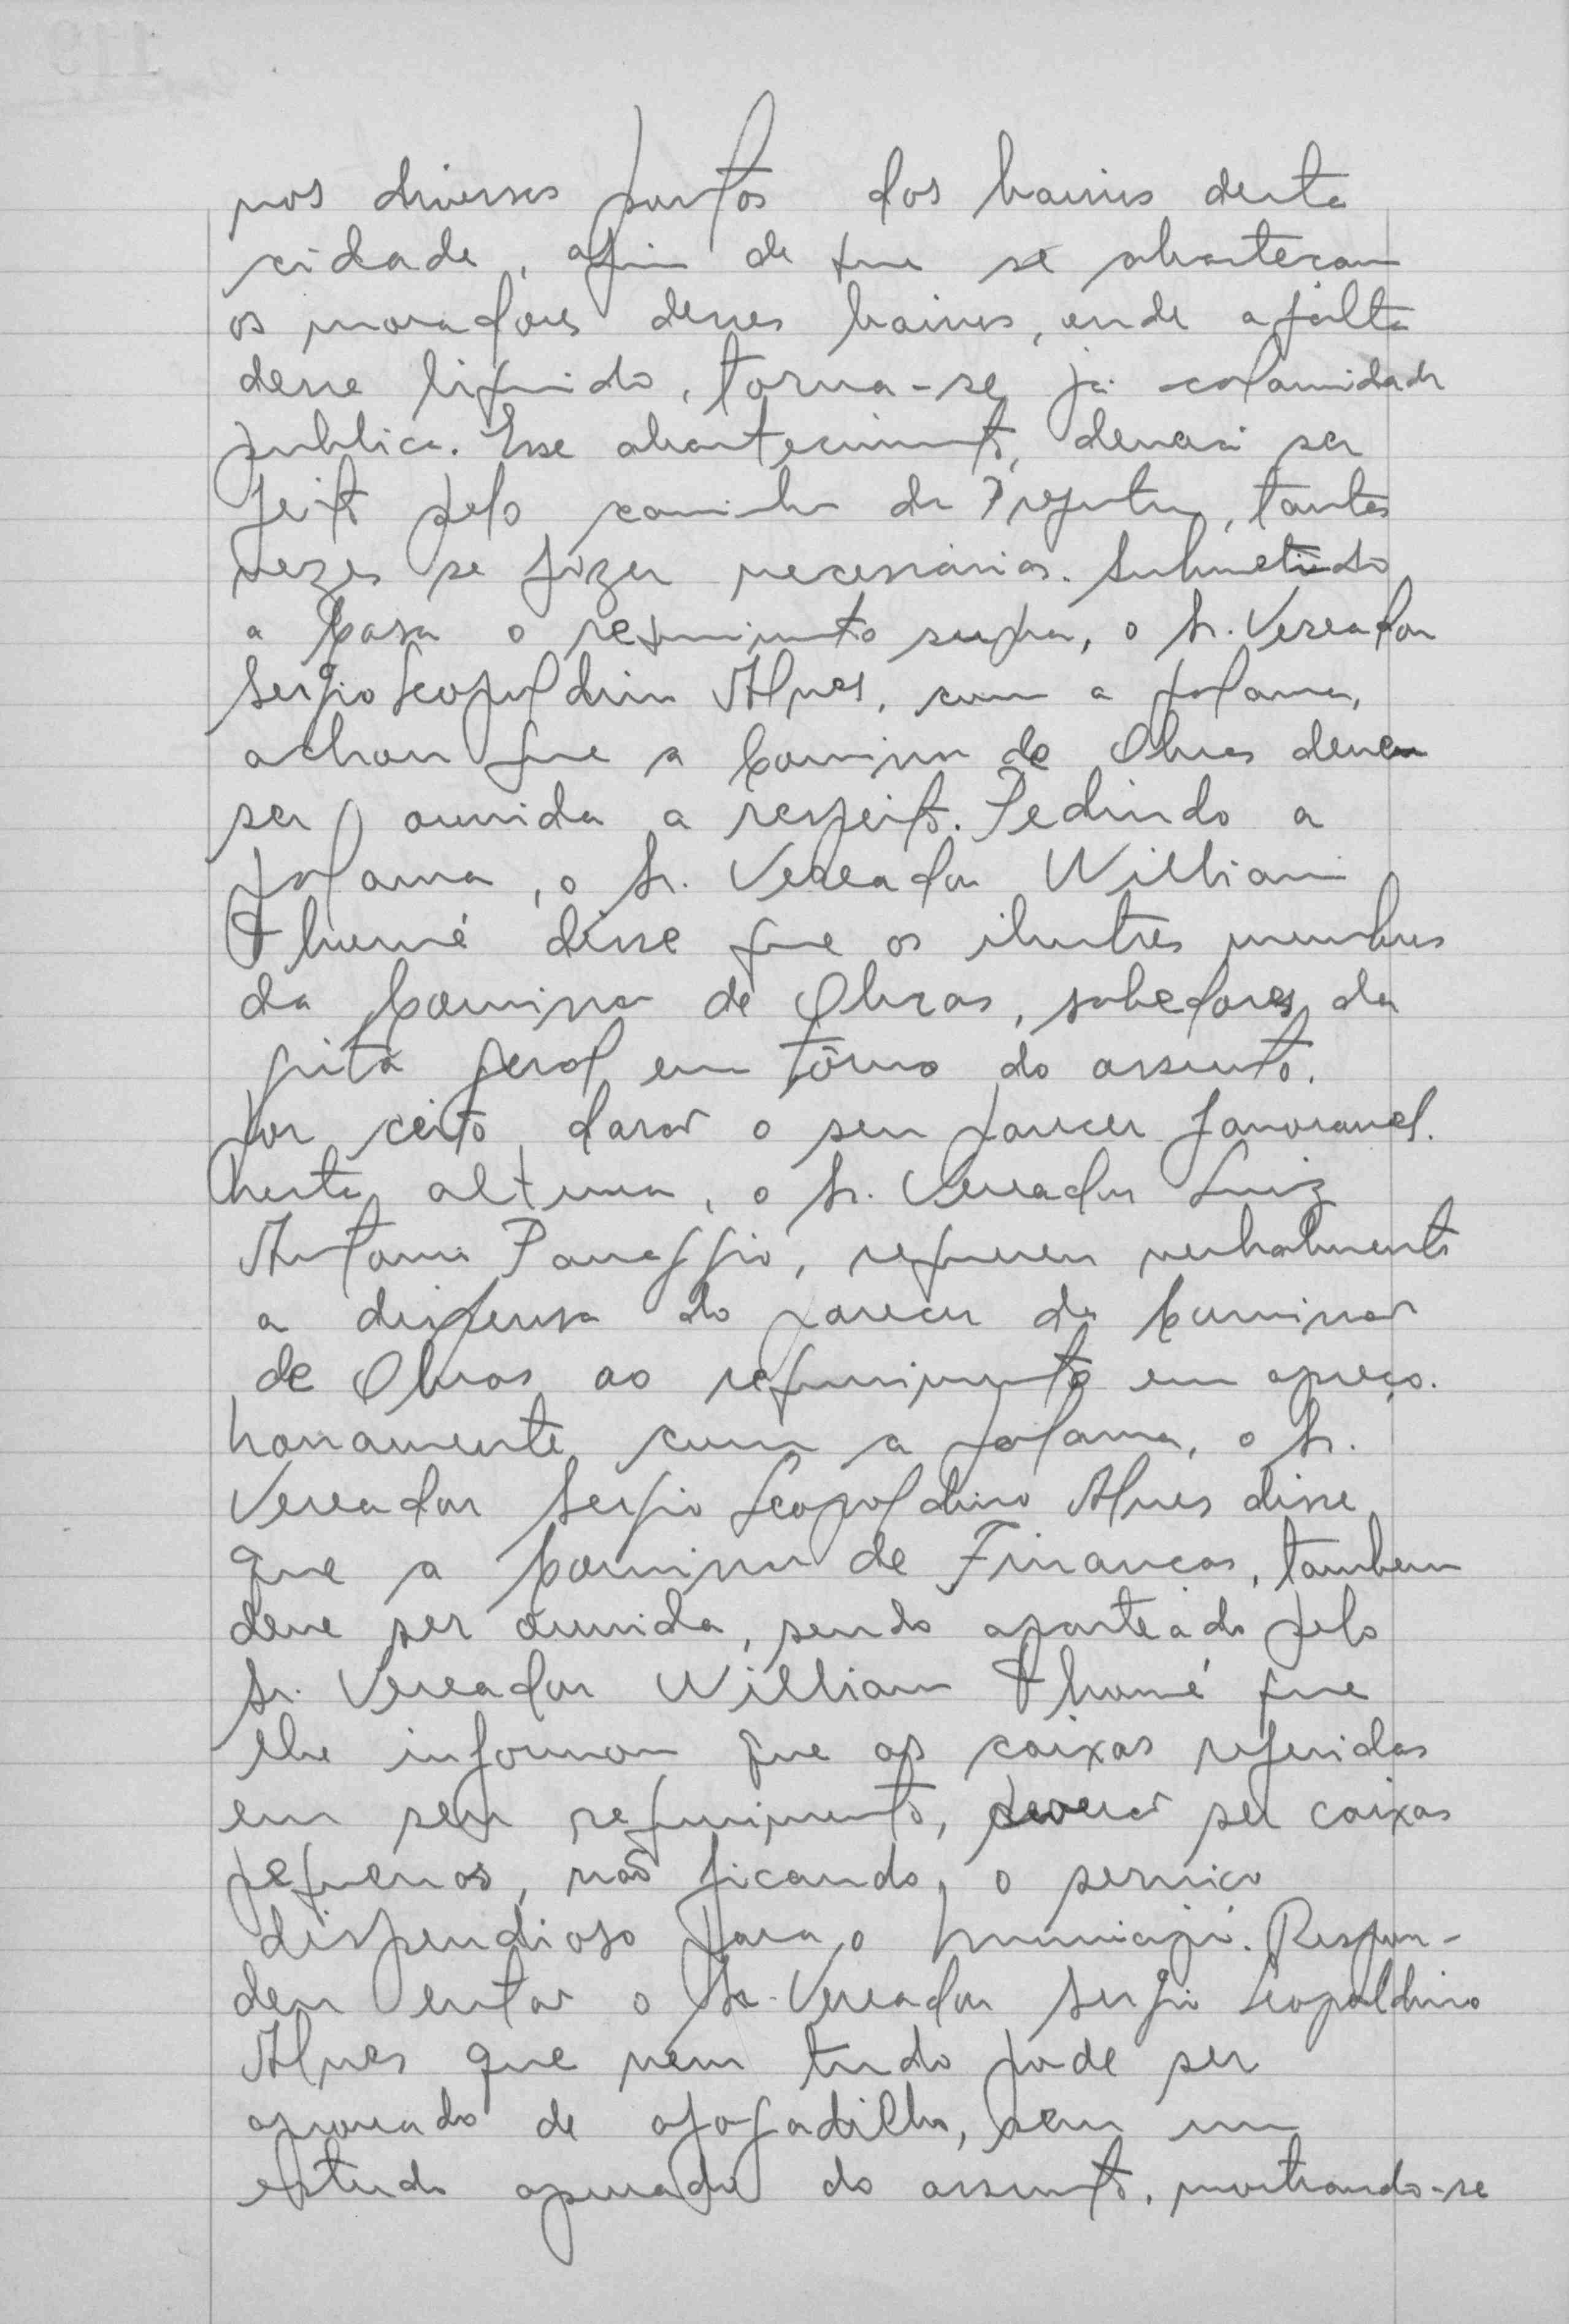 nos diversos pontos dos bairros desta
cidade, afim de que se abasteçam
os moradores desses bairros, onde a falta
desse liquido, torna-se já calamidade
publica. Esse abastecimento, deverá ser
feito pelo caminhão da Prefeitura, tantas
vezes se fizer necessarias. Submetido
a Casa o requerimento supra, o Sr. Vereador
Sergio Leopoldino Alves, com a palavra,
achou que a Comissão de Obras deveria
ser ouvida a respeito. Pedindo a
palavra, o Sr. Vereador William
Thomé disse que os ilustres membros
da Comissão de Obras, sabedores da
grita geral em tôrno do assunto.
por certo, darão o seu parecer favoravel.
Nesta altura, o Sr. Vereador Luiz
Antonio Panaggio, requereu verbalmente
a dispensa do parecer da Comissão
de Obras ao requerimento em apreço.
Novamente com a palavra, o Sr.
Vereador Sergio Leopoldino Alves disse
que a Comissão de Finanças, tambem
deve ser ouvida, sendo aparteado pelo
Sr. Vereador William Thomé que
lhe informou que as caixas referidas
em seu requerimento, deverão ser caixas
pequenas, não ficando, o serviço
dispendioso para o município. Respon-
deu então o Sr. Vereador Sergio Leopoldino
Alves que nem tudo pode ser
aprovado de afogadilho, sem um
estudo apurado do assunto, mostrando-se